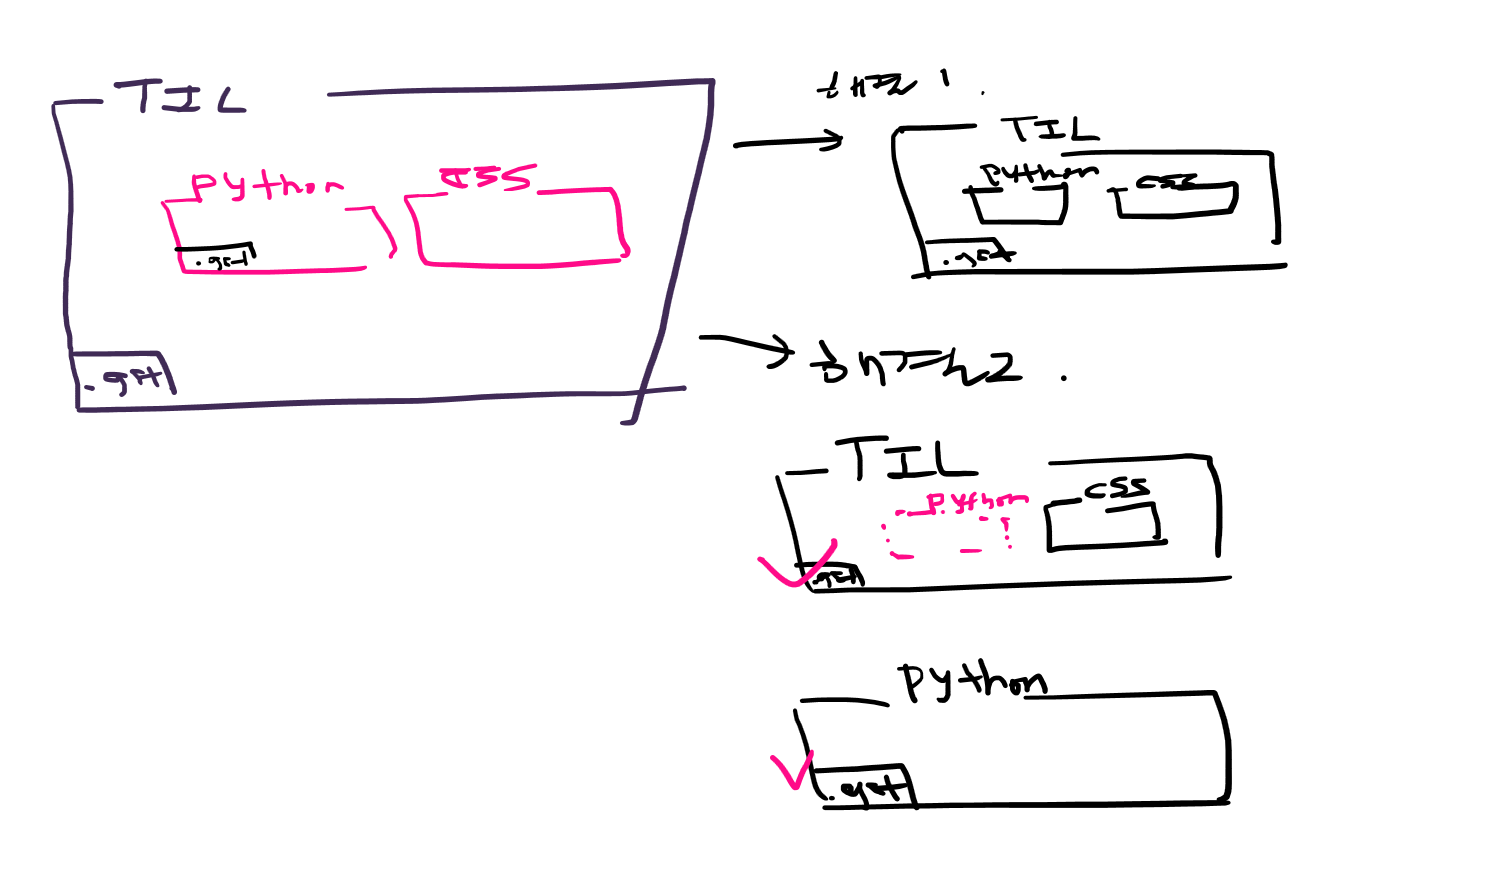 TIL
python
css
.git
.git
1 .
TIL
python
css
.git
2 .
TIL
python
css
.git
python
.git